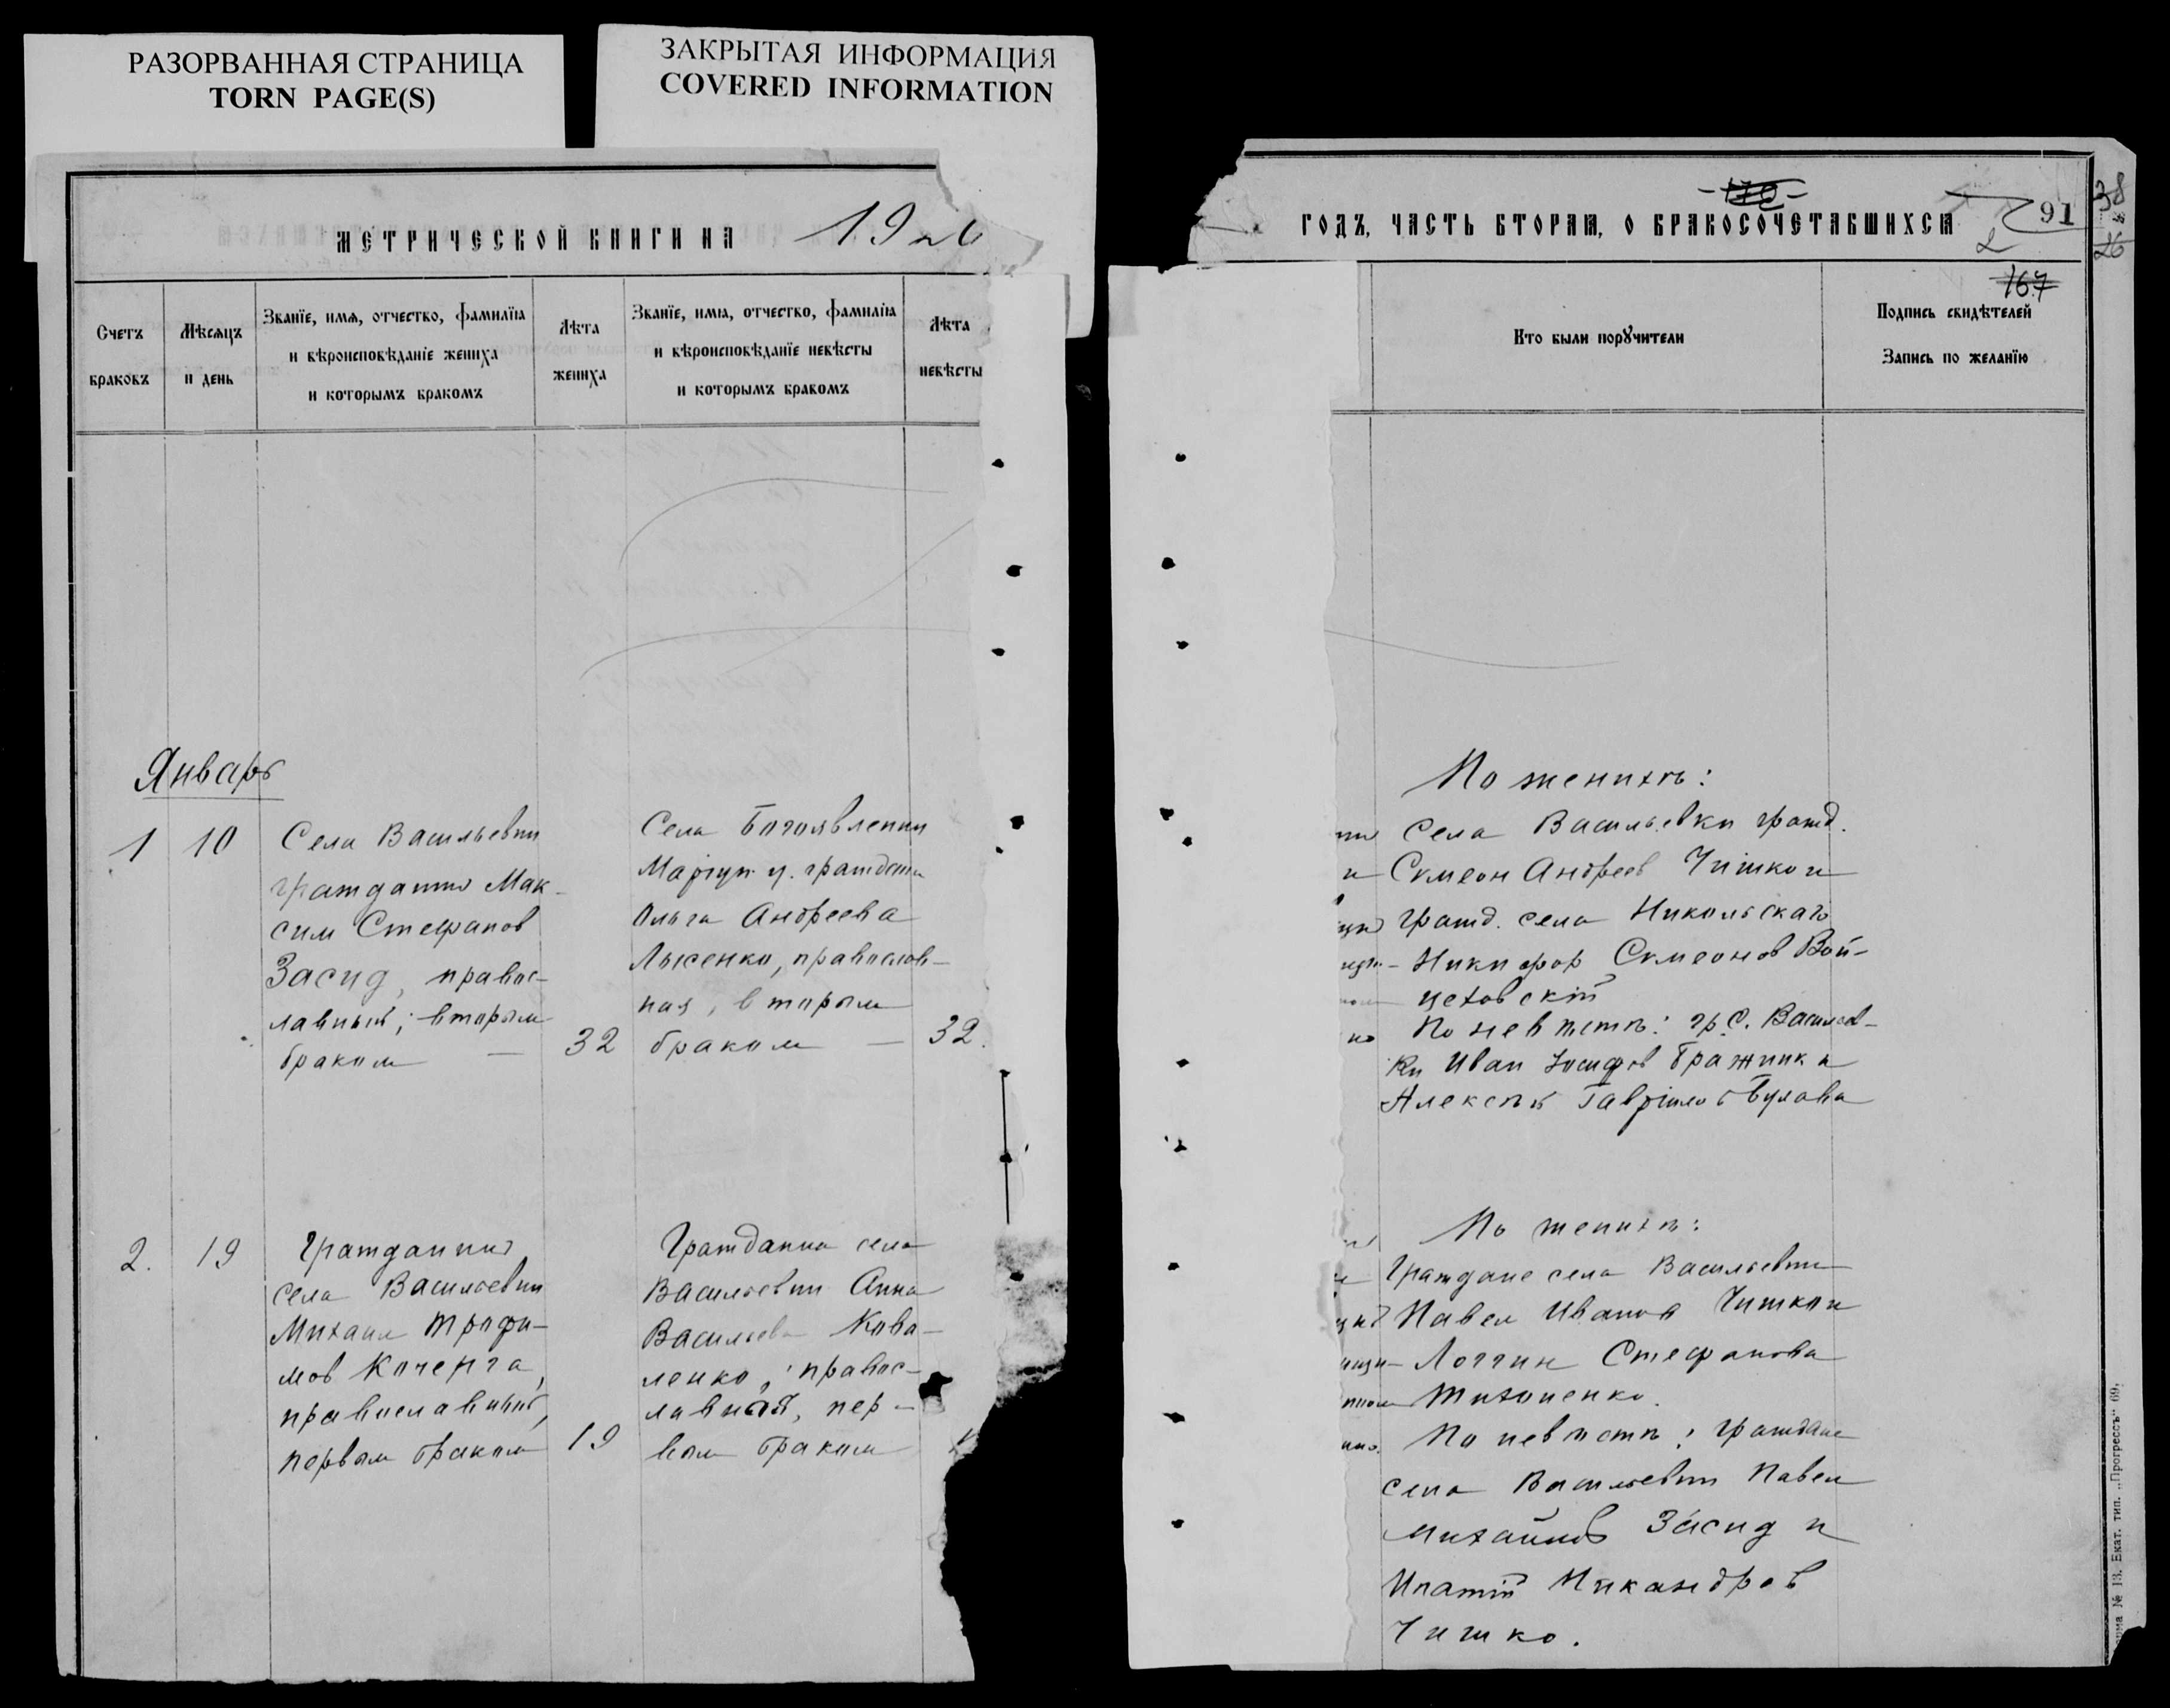 РАЗОРВАННАЯ СТРАНИЦА
TORN PAGE(S)
ЗАКРЫТАЯ ИНФОРМАЦИЯ
COVERED INFORMATION
МЕТРИЧЕСКОЙ КНИГИ НА 192
Счетъ
браковъ
Мѣсяцъ
и день
Званїе, имя, отчество, фамилїя
и вѣроисповѣданїе жениха
и которымъ бракомъ
Лѣта
жениха
Званїе, имя, отчество, фамилїя
и вѣроисповѣданїе невѣсты
и которымъ бракомъ
Лѣта
невѣсты
Январь
1
10
Села Васильевки
гражданин Мак-
сим Стефанов
Засид, правос-
лавный; вторым
браком —
32
Села Богоявленки
Маріуп. у. гражданка
Ольга Андреева
Лысенко, православ-
ная, вторым
браком —
32.
2.
19
Гражданин
села Васильевки
Михаил Трофи-
мов Кочерга,
православный,
первым браком
19
Гражданка села
Васильевки Анна
Васильева Кова-
ленко, правос-
лавная, пер-
вым браком
ГОДЪ, ЧАСТЬ ВТОРАЯ, О БРАКОСОЧЕТАВШИХСЯ
91
38
26
167
Кто были поручители
Подпись свидѣтелей
Запись по желанїю
По женихѣ:
Села Васильевки гражд.
Симеон Андреев Чишко и
гражд. села Никольскаго
Никифор Симеонов Вой-
цеховскій
По невѣстѣ: гр. с. Васильев-
ки Иван Іосифов Бражник и
Алексѣй Гавріилов Булава
По женихѣ:
Граждане села Васильевки
Павел Иванов Чишко и
Логгин Стефанова
Тихоненко.
По невѣстѣ: граждане
села Васильевки Павел
Михайлов Засид и
Ипатій Никандров
Чишко.
№ 13. Екат. тип. „Прогрессъ“ 69.